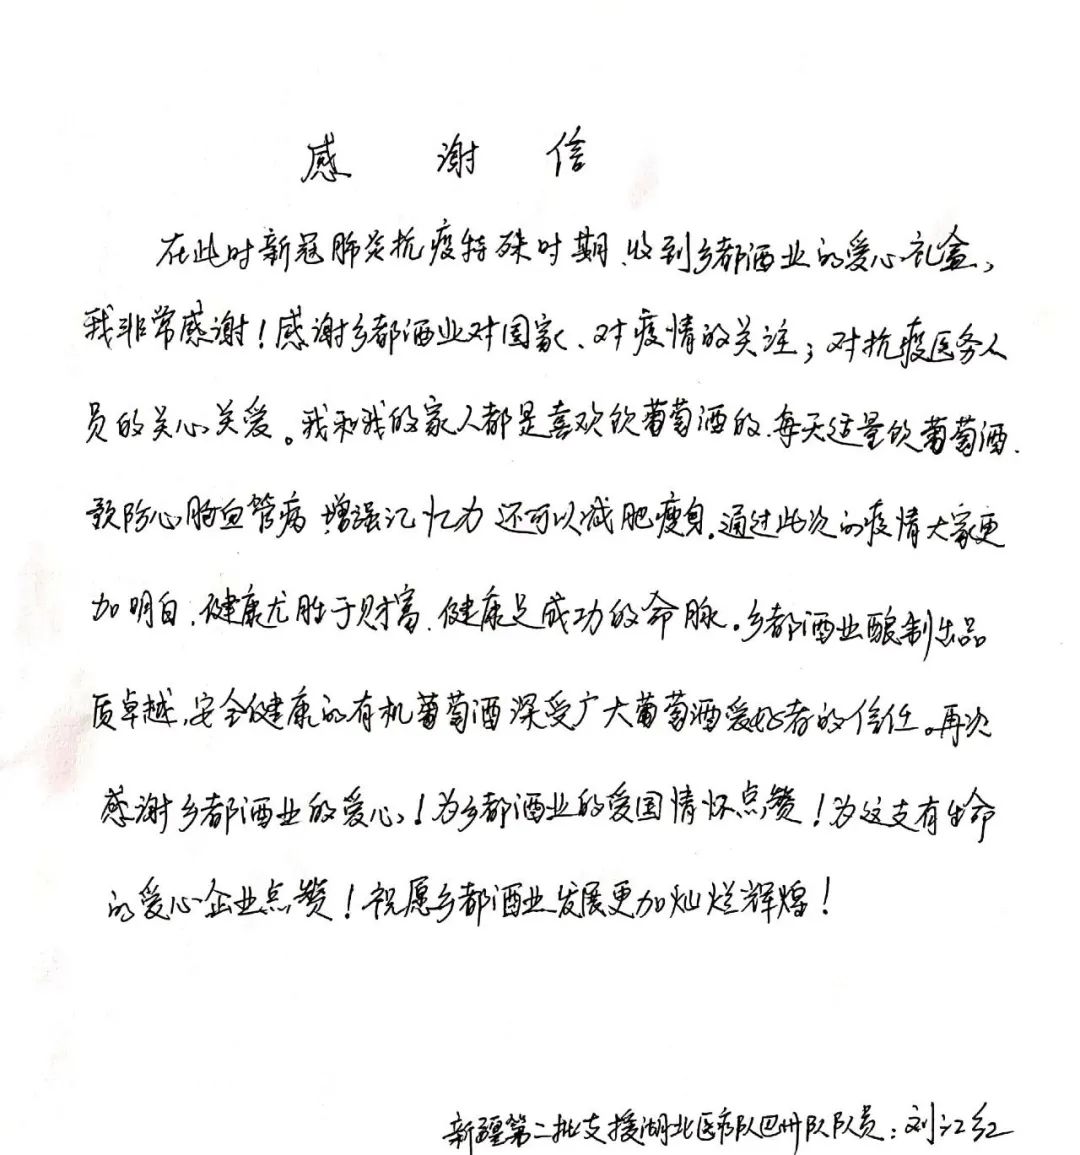 感 谢 信
在此时新冠肺炎抗疫特殊时期、收到乡都酒业的爱心礼盒,
我非常感谢!感谢乡都酒业对国家、对疫情的关注;对抗疫医务人
员的关心关爱。我和我的家人都是喜欢饮葡萄酒的、每天适量饮葡萄酒.
预防心脑血管病 增强记忆力 还可以减肥瘦身。通过此次的疫情大家更
加明白、健康尤胜于财富、健康是成功的命脉。乡都酒业酿制出品
质卓越、安全健康的有机葡萄酒深受广大葡萄酒爱好者的信任。再次
感谢乡都酒业的爱心!为乡都酒业的爱国情怀点赞!为这支有生命
的爱心企业点赞!祝愿乡都酒业发展更加灿烂辉煌!
新疆第二批支援湖北医疗队巴州队队员:刘江红